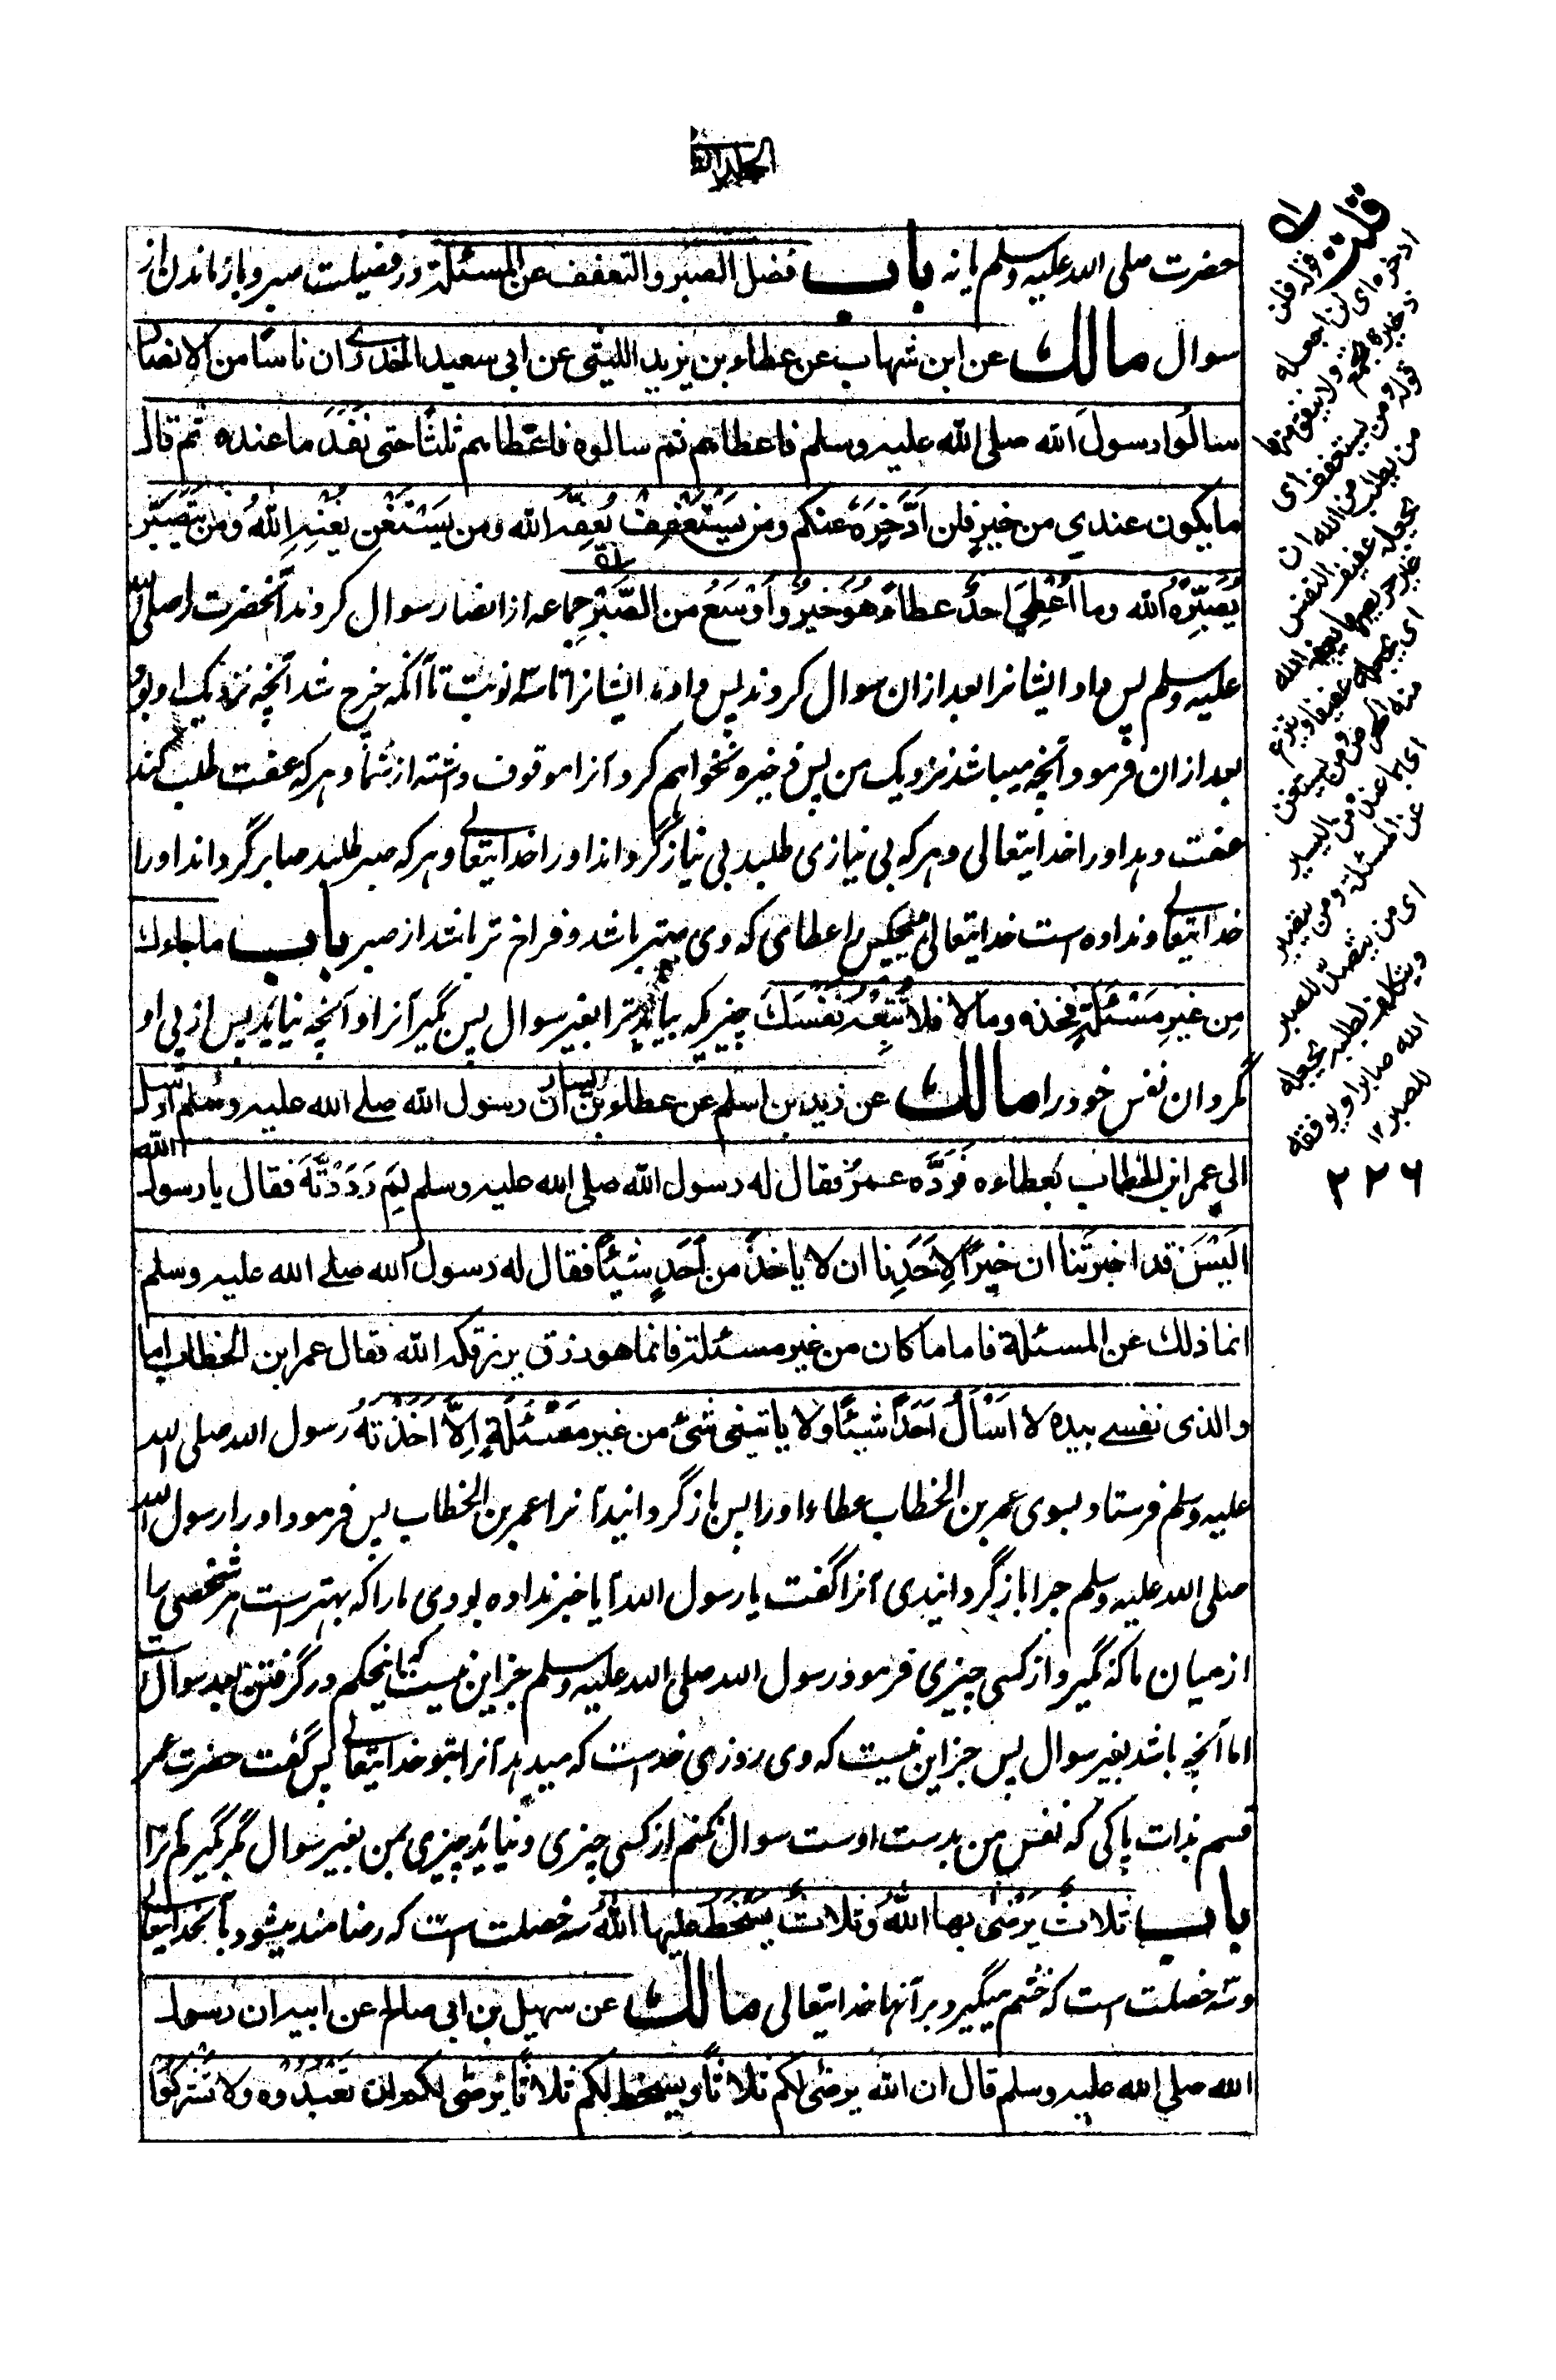 حضرت صلی الله علیه وسلم یا نه باب فضل الصبر والتعفف عن المسئلة در فضیلت صبر و باز ماندن از
سوال مالك عن ابن شهاب عن عطاء بن يزيد الليثي عن ابي سعيد الخدري ان ناسًا من الانصار
سالوا رسولَ الله صلى الله عليه وسلم فاعطاهم ثم سالوه فاعطاهم ثلثًا حتى نَفَدَ ما عنده ثم قال
ما يكون عندي من خيرٍ فلن اَدَّخِرَهُ عنكم ومن يَسْتَعْفِفْ يُعِفَّهُ الله ومن يَسْتَغْنِ يُغْنِهِ اللهُ وَمَنْ يَتَصَبَّر
يُصَبِّرْهُ الله وما اُعْطِيَ احدٌ عطاءً هُوَ خيرٌ وَاَوْسَعُ من الصَّبْرِ جماعه از انصار سوال کردند آنحضرت را صلی الله
علیه وسلم پس داد ایشانرا بعد ازان سوال کردند پس داد ایشانرا تا سه نوبت تا آنکه خرج شد آنچه نزدیک او بود
بعد ازان فرمود آنچه میباشد نزدیک من پس ذخیره نخواهم کرد آنرا موقوف داشته از شما و هر که عفت طلب کند
عفت دهد او را خدایتعالی و هر که بی نیازی طلبد بی نیاز گرداند او را خدایتعالی و هر که صبر طلبد صابر گرداند او را
خدایتعالی و نداده است خدایتعالی هیچکس را عطای که وی بهتر باشد و فراخ تر باشد از صبر باب ما جاءك
مِن غيرِ مَسْئَلَةٍ فخذه وما لا فلا تُتْبِعْهُ نَفْسَكَ چیزیکه بیاید ترا بغیر سوال پس بگیر آنرا و آنچه نیاید پس از پی او
مگردان نفس خود را مالك عن زيد بن اسلم عن عطاء بن يسار ان رسول الله صلى الله عليه وسلم ارسل
الى عمر ابن الخطاب بعطاءه فَرَدَّه عمرُ فقال له رسول الله صلى الله عليه وسلم لِمَ رَدَدْتَّهُ فقال يا رسول الله
اَلَيْسَ قد اخبرتَنا ان خيرًا لِاَحَدِنا ان لا ياخذَ من اَحَدٍ شيئًا فقال له رسول الله صلى الله عليه وسلم
انما ذلك عن المسئلة فاما ما كان من غير مسئلة فانما هو رزق يرزقكه الله فقال عمر ابن الخطاب اما
والذي نفسي بيده لا اَسْاَلُ اَحَدًا شيئًا ولا ياتيني شئ من غير مَسْئَلَةٍ اِلَّا اَخَذْتُهُ رسول الله صلی الله
علیه وسلم فرستاد بسوی عمر بن الخطاب عطاء او را پس باز گردانید آنرا عمر بن الخطاب پس فرمود او را رسول الله
صلی الله علیه وسلم چرا باز گردانیدی آنرا گفت یا رسول الله آیا خبر نداده بودی ما را که بهتر است هر شخصی را
از میان ما که نگیرد از کسی چیزی فرمود رسول الله صلی الله علیه وسلم جز این نیست که اینحکم در گرفتن بعد سوال است
اما آنچه باشد بغیر سوال پس جز این نیست که وی روزی خداست که میدهد آنرا بتو خدایتعالی پس گفت حضرت عمر
قسم بذات پاکی که نفس من بدست اوست سوال نکنم از کسی چیزی و نیاید چیزی بمن بغیر سوال مگر بگیرم آنرا
باب ثلاثٌ يَرْضٰى بها اللهُ وَثلاثٌ يَسْخَطُ عليها اللهُ سه خصلت است که رضامند میشود بآن خدایتعالی
وسه خصلت است که خشم میگیرد بر آنها خدایتعالی مالك عن سهيل بن ابي صالح عن ابيه ان رسول
الله صلى الله عليه وسلم قال ان الله يرضى لكم ثلاثًا ويسخط لكم ثلاثًا يرضى لكم ان تَعْبُدُوه ولا تُشْرِكُوا
قوله فلن
ادخره اي لن اجعله
ذخيرة
قوله ومن يستعفف اي
من يطلب من الله ان
يجعله عفيف النفس
يعفه الله
اي يجعله عفيفا
ومن يستغن
اي بما عنده من اليسير
عن المسئلة ومن يتصبر
اي من يتصد للصبر
ويتكلف لطلبه يجعله
الله صابرا ويوفقه
للصبر ١٢
٢٢٦